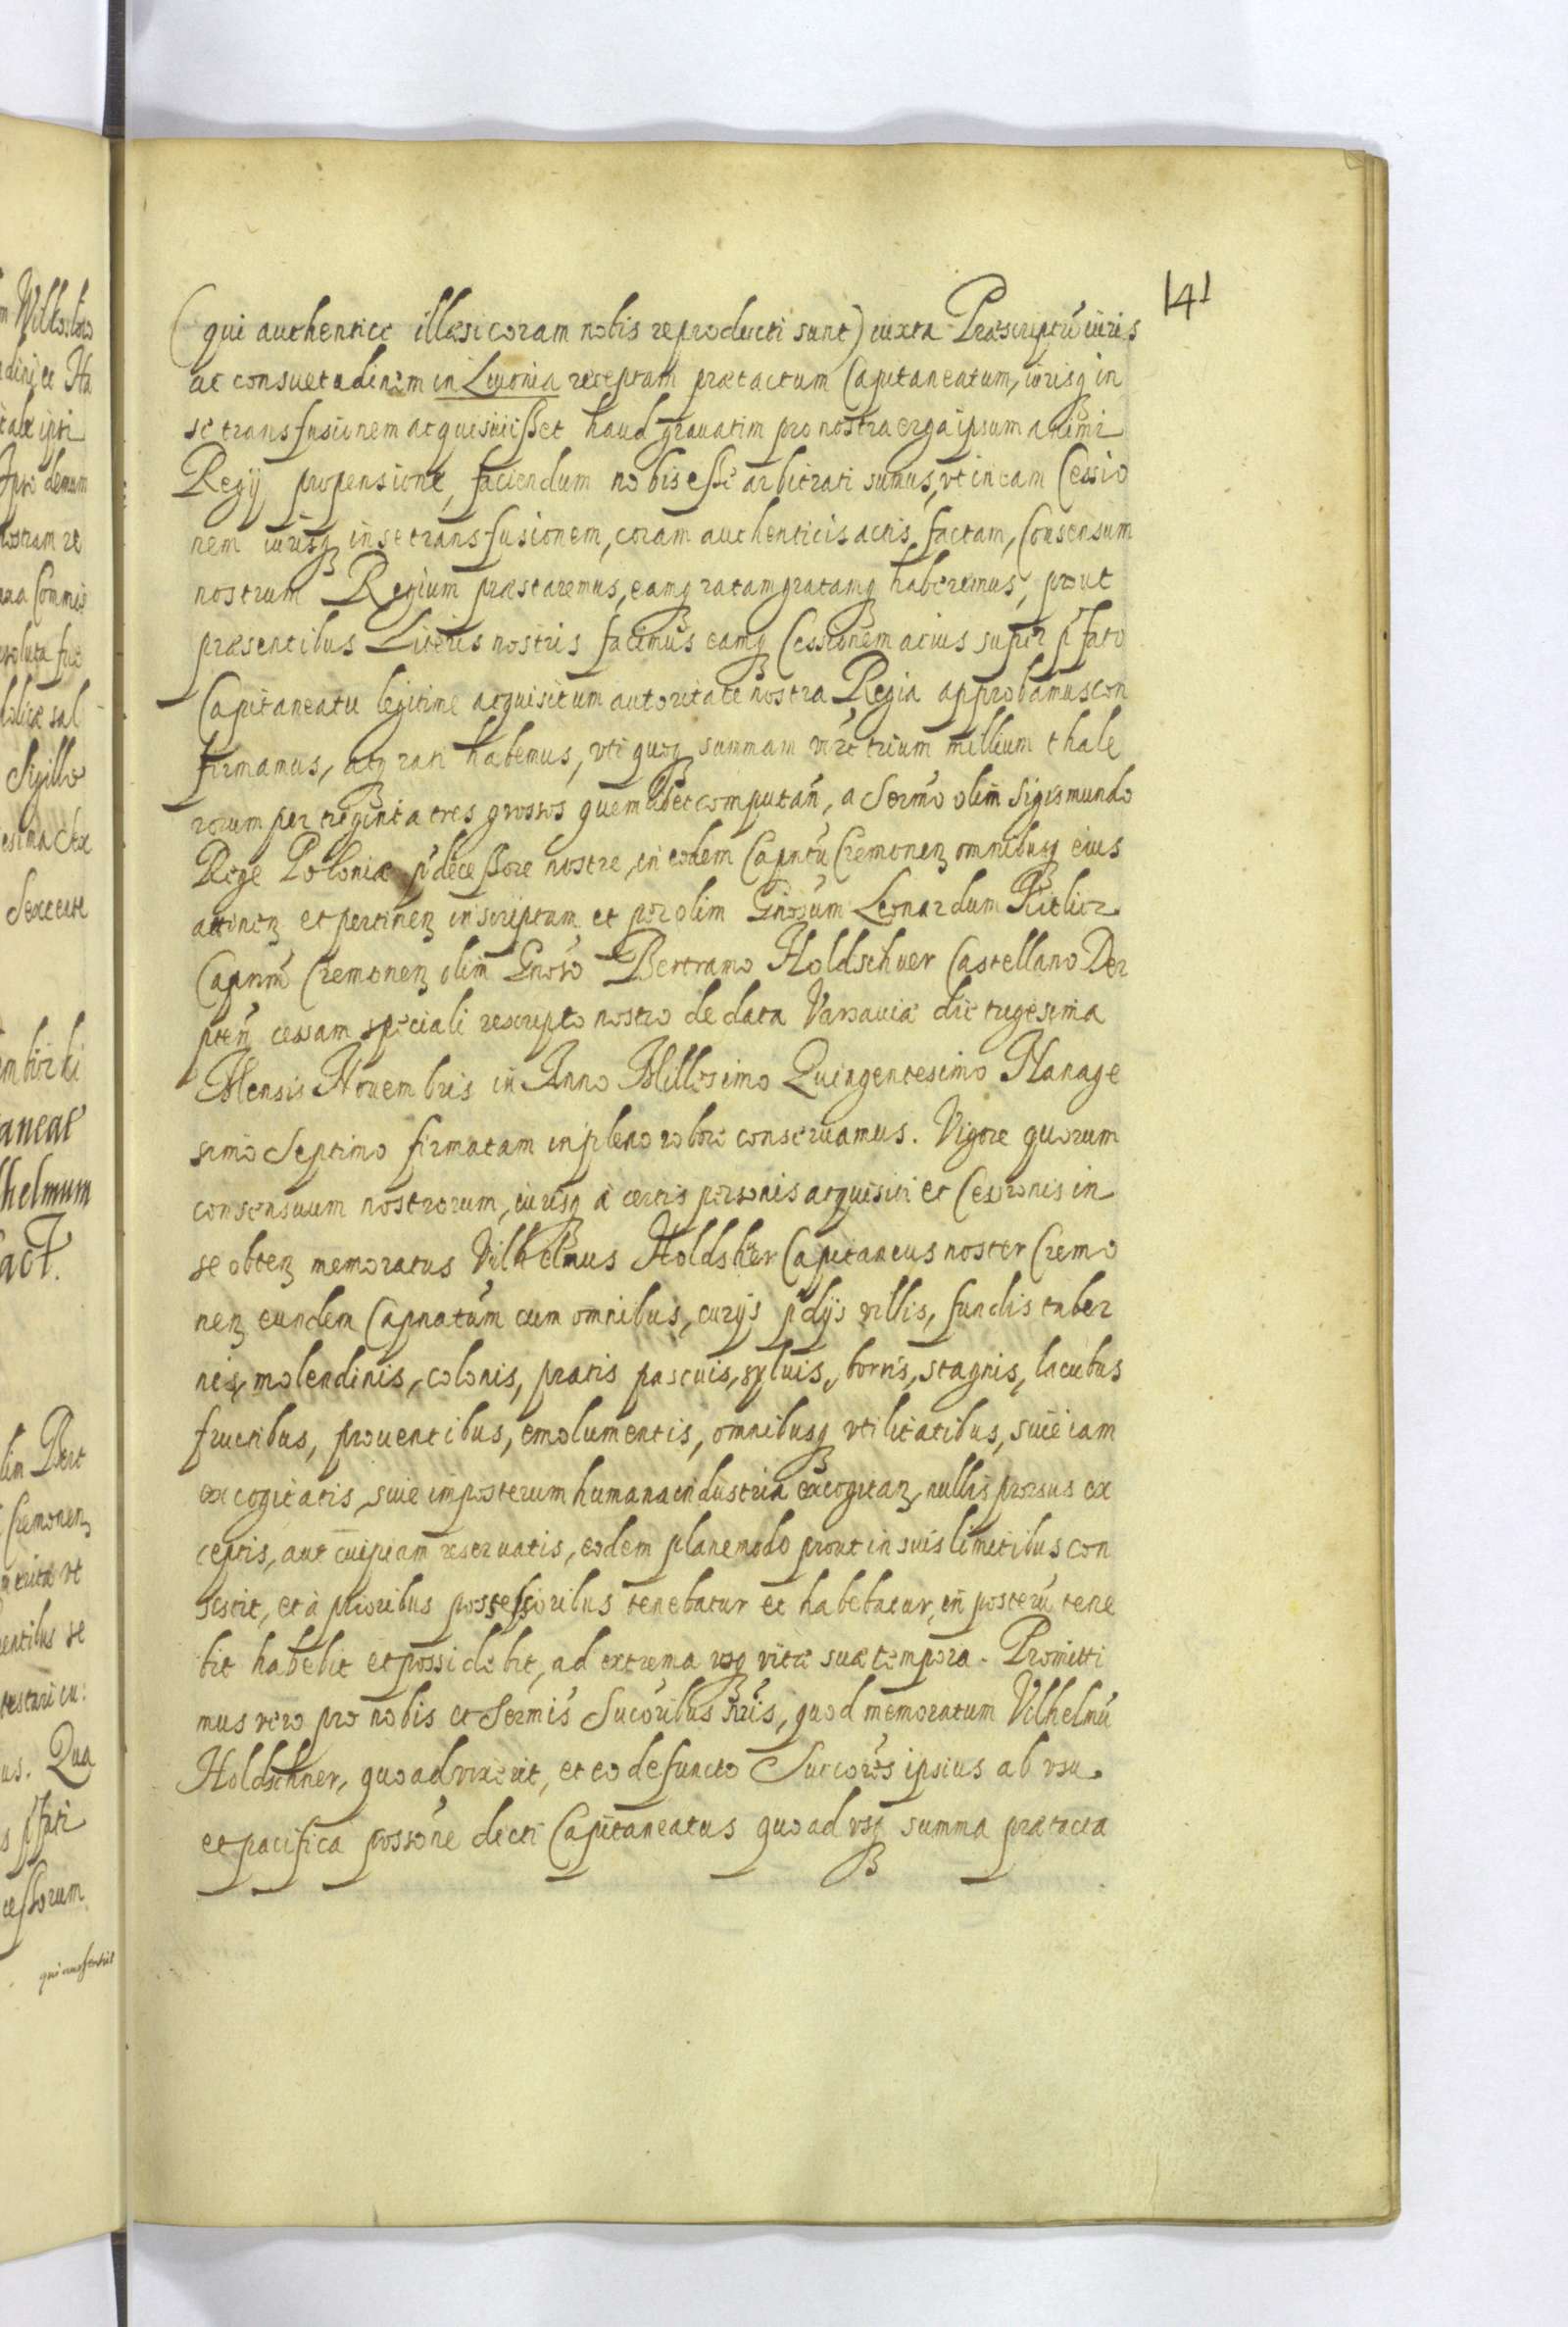 141
(qui authentice illæsi coram nobis reproducti sunt) iuxta Præscriptũ iuris
ac consuetudinem in Liuonia receptam prætactum Capitaneatum, iurisq in
se transfusionem acquisiuisset haud grauatim pro nostra erga ipsum animi
Regij propensione, faciendum nobis esse arbitrati sumus, vt in eam Cessio
nem iurisq in se transfusionem, coram authenticis actis factam, Consensum
nostrum Regium præstaremus, eamq ratam gratamq haberemus, prout
præsentibus Literis nostris facimus eamq Cessionem ac ius super p̃fato
Capitaneatu legitime acquisitum autoritate nostra Regia approbamus con
firmamus, atq rati habemus, vti quoq summam trium millium thale
rorum per triginta tres grossos quemlibet computan̄, a Sermo olim Sigismundo
Rege Poloniæ p̃decessore nostre, in eodem Capntũ Cremonen omnibusq eius
attinen et pertinen inscriptam et per olim Gnosum Leonardum Kitlicz
Capnm̃ Cremonen olim Gnoso Bertramo Holdschuer Castellano Der
pten̄ cessam speciali rescripto nostro de data Varsauiæ die trigesima
Mensis Nouembris in Anno Millesimo Quingentesimo Nanage
simo Septimo firmatam in pleno robore conseruamus. Vigore quorum
consensuum nostrorum, iurisq à certis personis acquisiti et Cessionis in
se obten memoratus Vilhelmus Holdsher Capitaneus noster Cremo
nen eundem Capnatum cum omnibus, curijs p̃dijs villis, fundis taber
nis, molendinis, colonis, pratis pascuis, syluis, borris, stagnis, lacubus
fructibus, prouentibus, emolumentis, omnibusq vtilitatibus, siue iam
excogitatis, siue imposterum humana industria excogitan, nullis prorsus ex
ceptis, aut cuipiam reseruatis, eodem plane modo prout in suis limitibus con
sistit, et à prioribus possessoribus tenebatur et habebatur, in posterũ tene
bit habebit et possidebit, ad extrema vsq vitæ suæ tempora. Promitti
mus vero pro nobis et Sermis Sucoribus nr̃is, quod memoratum Vilhelmũ
Holdschner, quoad vixerit, et eo defuncto Succores ipsius ab vsu
et pacifica possone dicti Capitaneatus quoad vsq summa prætacta